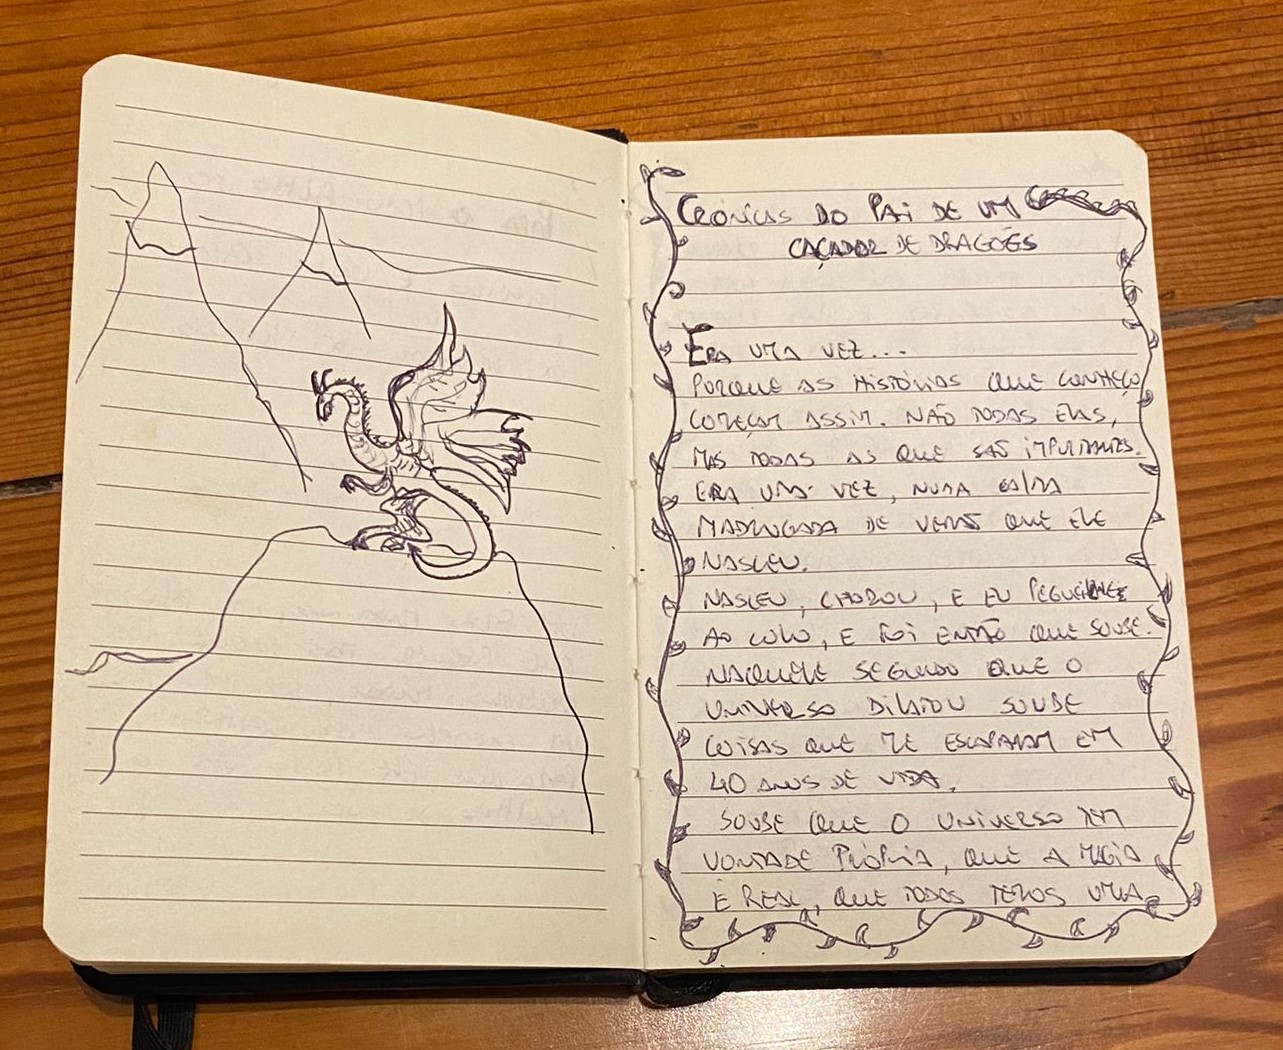 CRÓNICAS DO PAI DE UM
CAÇADOR DE DRAGÕES
ERA UMA VEZ...
PORQUE AS HISTÓRIAS QUE CONHEÇO
COMEÇAM ASSIM. NÃO TODAS ELAS,
MAS TODAS AS QUE SÃO IMPORTANTES.
ERA UMA VEZ, NUMA CALMA
MADRUGADA DE VERÃO QUE ELE
NASCEU.
NASCEU, CHOROU, E EU PEGUEI-LHE
AO COLO, E FOI ENTÃO QUE SOUBE.
NAQUELE SEGUNDO QUE O
UNIVERSO DILATOU SOUBE
COISAS QUE ME ESCAPARAM EM
40 ANOS DE VIDA.
SOUBE QUE O UNIVERSO TEM
VONTADE PRÓPRIA, QUE A MAGIA
É REAL, QUE TODOS TEMOS UMA